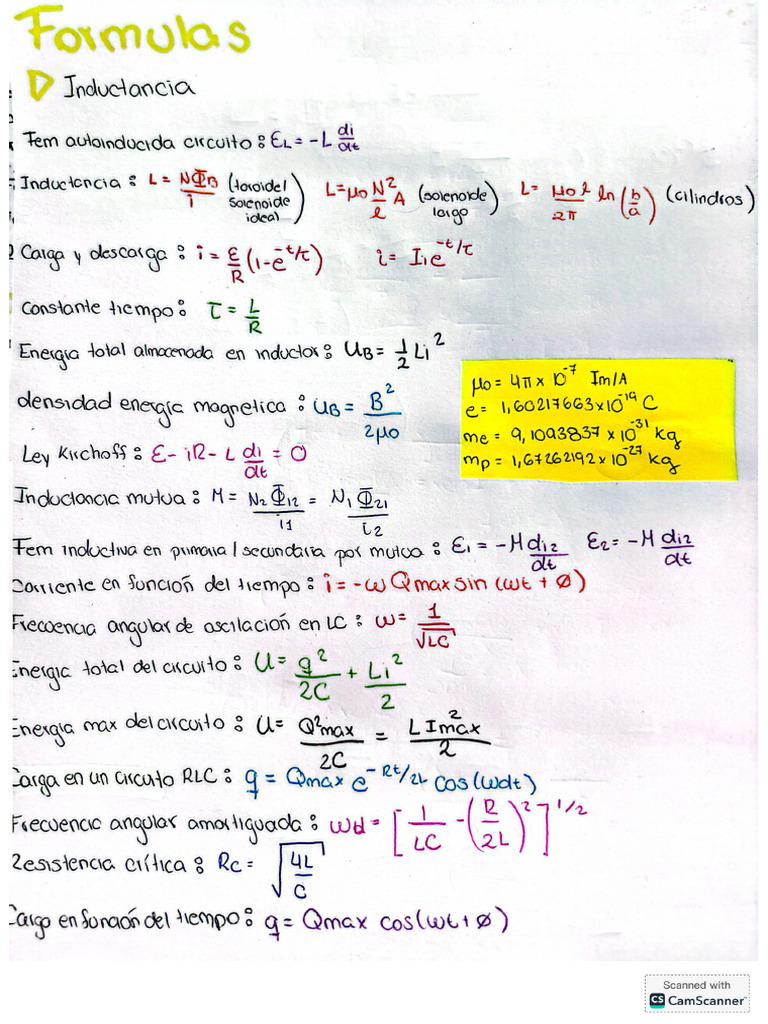 Formulas
Inductancia
Fem autoinducida circuito: εL = -L di/dt
Inductancia: L = NΦB/i (toroide / solenoide ideal) L = μ0 N²/l A (solenoide largo) L = μ0 l/2π ln(b/a) (cilindros)
Carga y descarga: i = ε/R (1-e^-t/τ) i = I1 e^-t/τ
Constante tiempo: τ = L/R
Energia total almacenada en inductor: UB = 1/2 Li²
densidad energía magnetica: uB = B²/2μ0
Ley Kirchoff: ε - iR - L di/dt = 0
μ0 = 4π x 10^-7 Tm/A
e = 1,60217663x10^-19 C
me = 9,1093837 x 10^-31 kg
mp = 1,67262192 x 10^-27 kg
Inductancia mutua: M = N2 Φ12/i1 = N1 Φ21/i2
Fem inductiva en primaria/secundaria por mutua: ε1 = -M di2/dt ε2 = -M di2/dt
Corriente en función del tiempo: i = -ω Qmax sin (ωt + ø)
Frecuencia angular de oscilación en LC: ω = 1/√LC
Energia total del circuito: U = q²/2C + Li²/2
Energia max del circuito: U = Q²max/2C = L Imax²/2
Carga en un circuito RLC: q = Qmax e^-Rt/2L cos(ωdt)
Frecuencia angular amortiguada: ωd = [1/LC - (R/2L)²]^1/2
Resistencia crítica: Rc = √4L/C
Carga en función del tiempo: q = Qmax cos(ωt + ø)
Scanned with
CS CamScanner